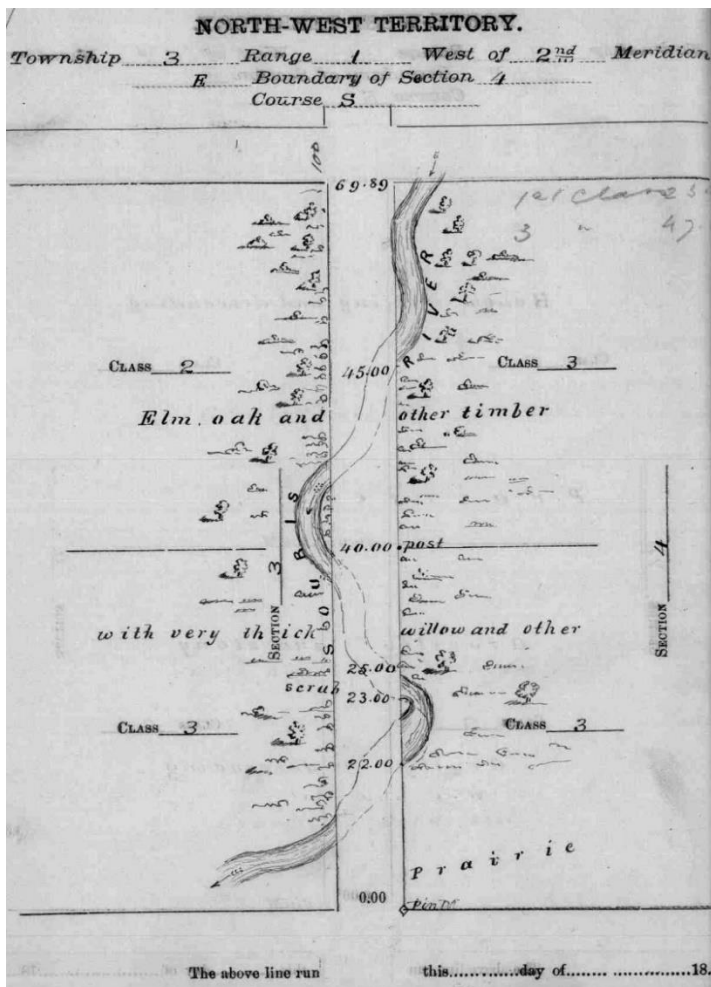 NORTH-WEST TERRITORY.
Township 3 Range 1 West of 2nd Meridian
E Boundary of Section 4
Course S
100
69.89
1st Class
3 " 47
RIVER
CLASS 2
45.00
CLASS 3
Elm. oak and other timber
SOURIS
SECTION 3
40.00 post
SECTION 4
with very thick willow and other
25.00
scrub
23.00
CLASS 3
CLASS 3
22.00
Prairie
0.00
Pin M
The above line run this............day of........ ................18.